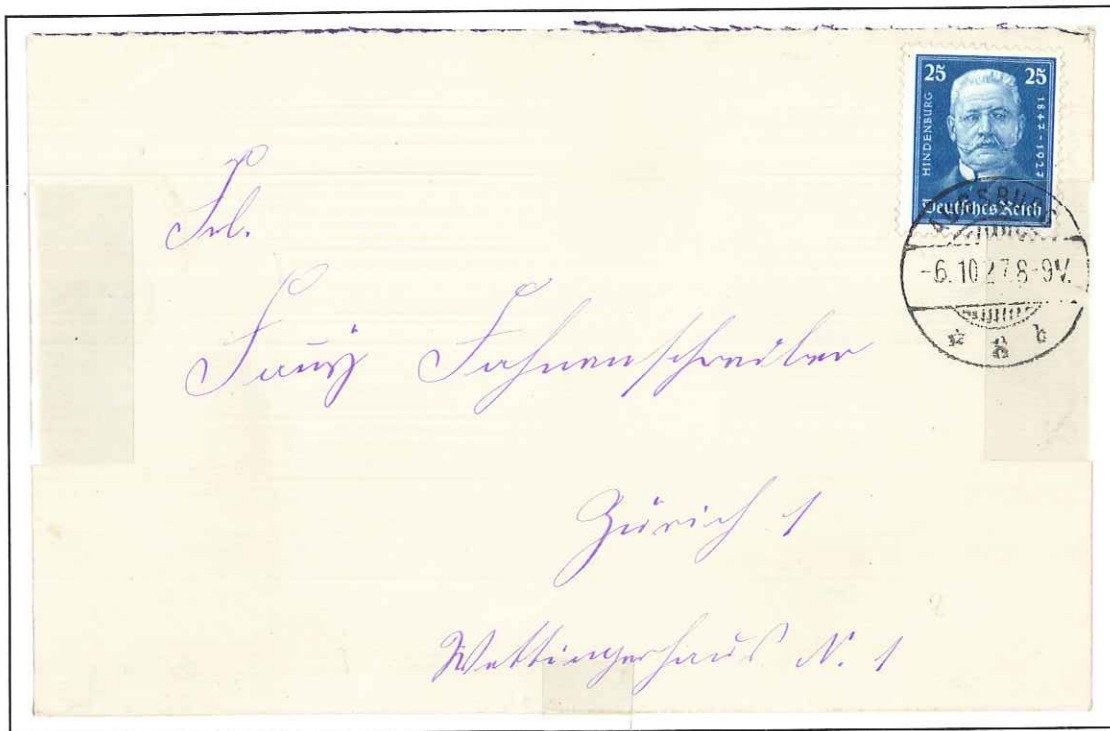 25 25
HINDENBURG
1847-1927
Deutsches Reich
AUGSBURG
-6.10.27.8-9V.
b
Frl.
Fahnenschreiber
Zürich 1
Wettingerhaus N. 1